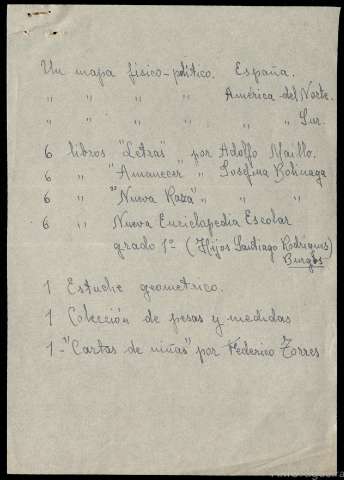 Un mapa físico-político. España.
" " " " América del Norte.
" " " " " " Sur.
6 libros "Letras" por Adolfo Maíllo.
6 " "Amanecer" " Josefina Bolinaga
6 " "Nueva Raza" " " "
6 " Nueva Enciclopedia Escolar
grado 1º (Hijos Santiago Rodríguez)
Burgos
1 Estuche geometrico.
1 Colección de pesas y medidas
1-"Cartas de niñas" por Federico Torres